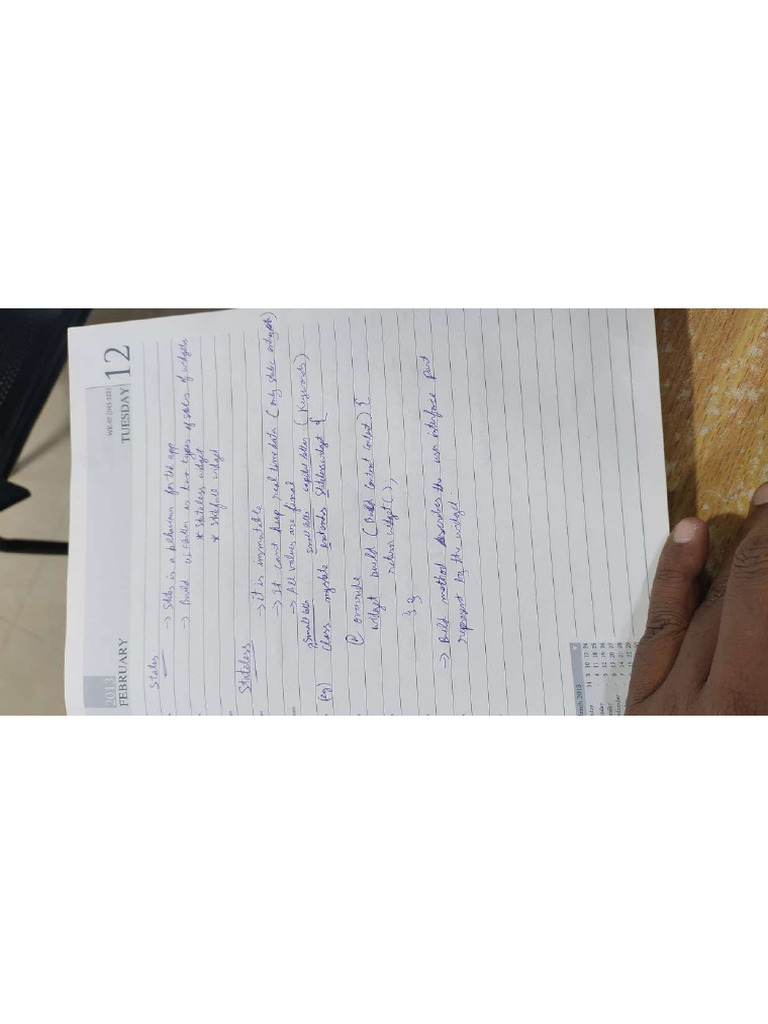 2013
FEBRUARY
WK 07 (043-322)
TUESDAY 12
States
→ States is a behaviour for the app
→ Build in flutter as two types of states of widgets
* Stateless widget
* Statfull widget
Stateless
→ it is immutable
→ It cant keep real time data (only static widgets)
→ All values are final
Small letter small letter capital letter (Keywords)
(eg) class mystate extends Statelesswidget {
@ override
widget build (Build Context context) {
return widget();
}}
→ Build method describes the user interface part
represent by the widget
March 2013